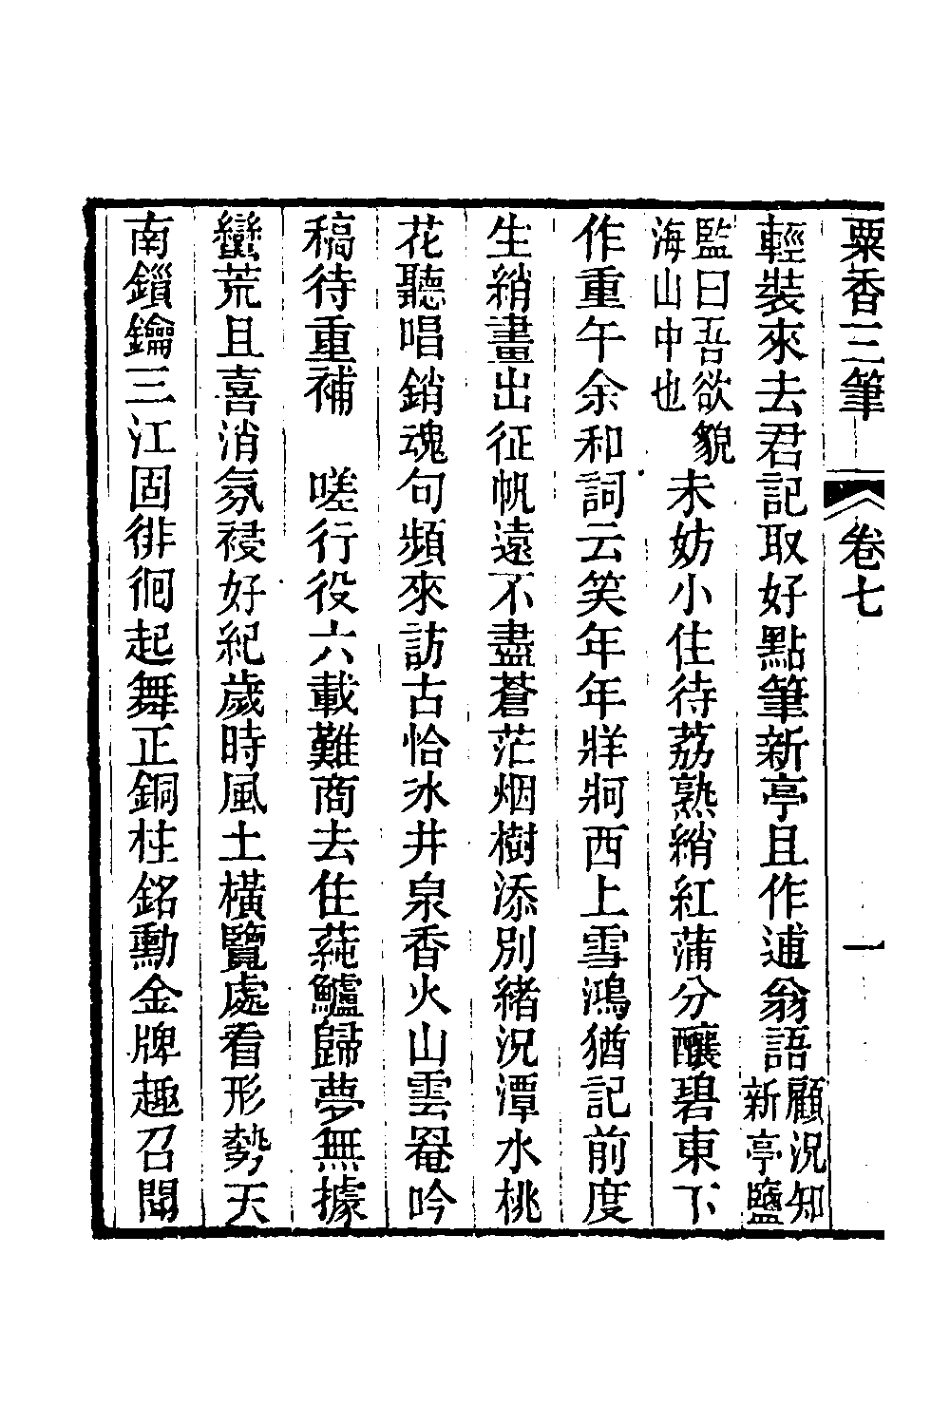 粟香三筆 卷七 一
輕裝來去君記取好點筆新亭且作逋翁語顧況知新亭鹽
監曰吾欲貌海山中也未妨小住待荔熟綃紅蒲分釀碧東下
作重午余和詞云笑年年牂牁西上雪鴻猶記前度
生綃畫出征帆遠不盡蒼茫烟樹添別緒況潭水桃
花聽唱銷魂句頻來訪古恰氷井泉香火山雲罨吟
稿待重補　嗟行役六載難商去住蒓鱸歸夢無據
蠻荒且喜消氛祲好紀歲時風土橫覽處看形勢天
南鎖鑰三江固徘徊起舞正銅柱銘勳金牌趣召聞